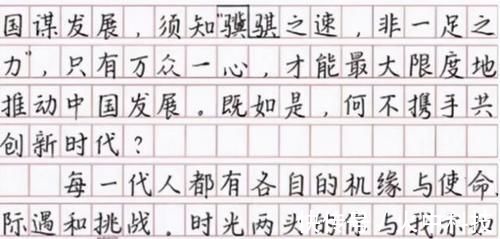 国谋发展，须知“骥骐之速，非一足之
力”，只有万众一心，才能最大限度地
推动中国发展。既如是，何不携手共
创新时代？
每一代人都有各自的机缘与使命、
际遇和挑战。时光两头的你与我